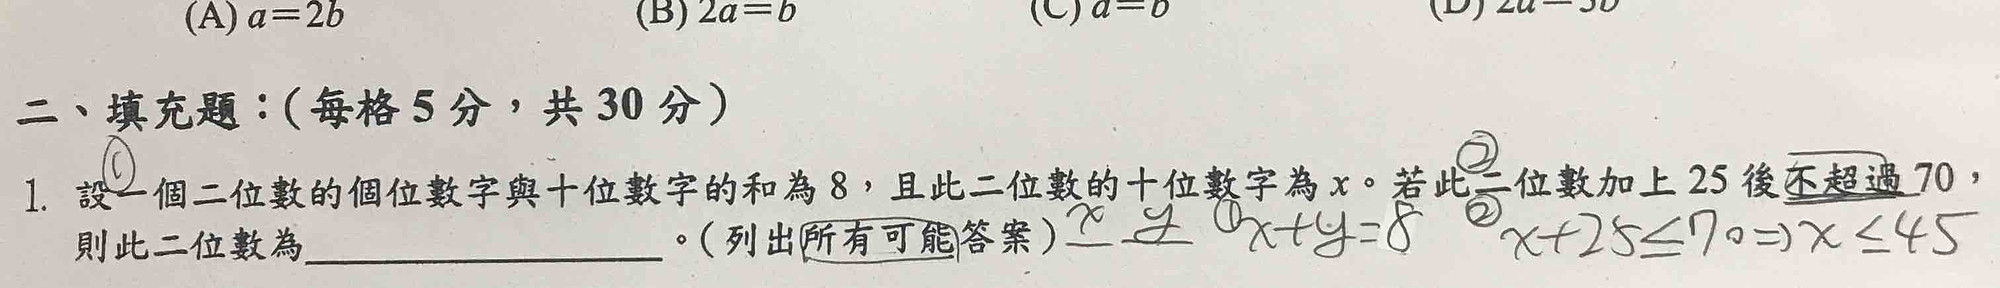 (A) a=2b (B) 2a=b (C) a=b (D) 2a=3b
二、填充題：(每格 5 分，共 30 分)
① ②
1. 設一個二位數的個位數字與十位數字的和為 8，且此二位數的十位數字為 x。若此二位數加上 25 後不超過 70，
則此二位數為____________。(列出所有可能答案) x y ①x+y=8 ②x+25≤70⇒x≤45